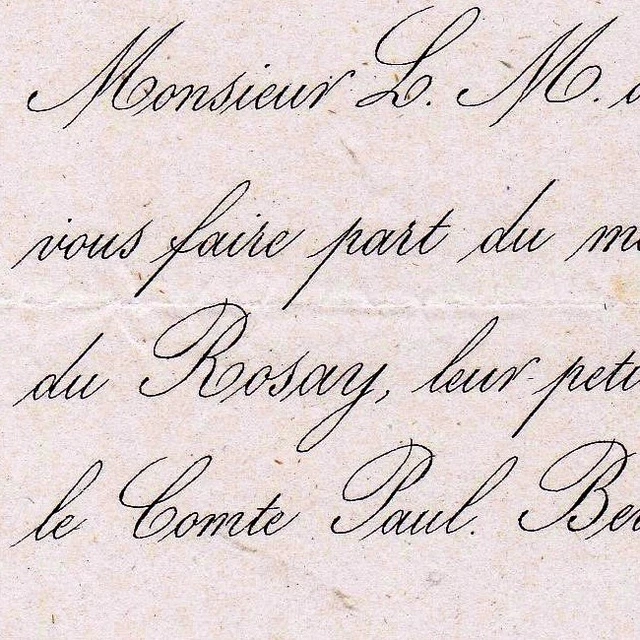 Monsieur L. M.
vous faire part du
du Rosay, leur
le Comte Paul.